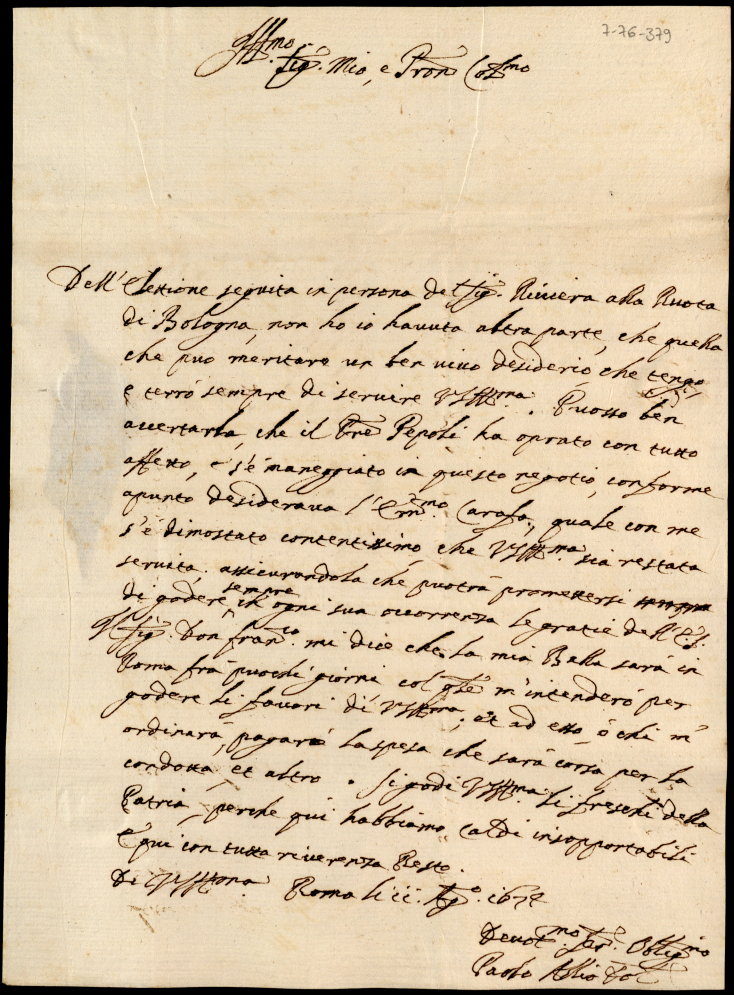 7-76-379
Ill.mo
Sig.r Mio, e Pron Col.mo
Dell' Elettione seguita in persona del Sig.r Riviera alla Ruota
di Bologna, non ho io havuta altra parte, che quella
che può meritare un ben vivo desiderio che tengo,
e terrò sempre di servire V.S.Ill.ma. Puosso ben
accertarla, che il Pre Pepoli ha oprato con tutto
affetto, e s'è maneggiato in questo negotio, conforme
apunto desiderava l'Em.mo Carafa, quale con me
s'è dimostato contentissimo che V.S.Ill.ma sia restata
servita. assicurandola che puotrà promettersi
sempre
di godere in ogni sua occorrenza le gratie dell' E.S.
Il Sig.r Don Fran.co mi dice che la mia Balla sarà in
Roma frà puochi giorni col qle m'intenderò per
godere li favori di V.S.Ill.ma, et ad esso ò chi m'
ordinarà, pagarò la spesa che sarà corsa per la
condotta, et altro. Si godi V.S.Ill.ma li freschi della
Patria, perche quì habbiamo caldi insopportabili
E qui con tutta riverenza Resto.
Di V.S.Ill.ma Roma li ii. Ag.o 1672
Devot.mo Ser. Oblig.mo
Paolo